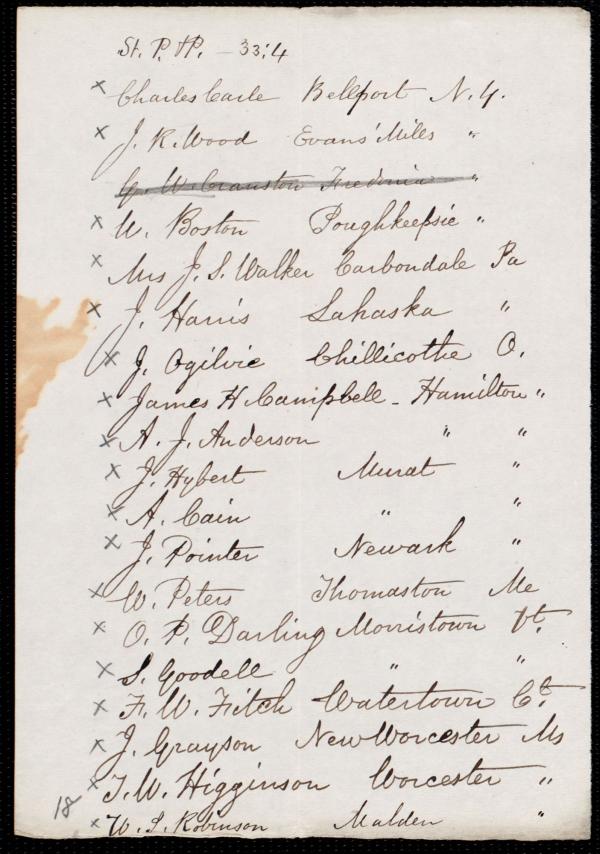 St. P. & P. — 33:4
x Charles Carle Bellport N.Y.
x J. R. Wood Evans' Mills "
G. W. Cranston Fredonia "
x W. Boston Poughkeepsie "
x Mrs J. S. Walker Carbondale Pa
x J. Harris Lahaska "
x J. Ogilvie Chillicothe O.
x James H Campbell - Hamilton "
x A. J. Anderson " "
x J. Hybert Murat "
x A. Cain " "
x J. Pointer Newark "
x W. Peters Thomaston Me
x O. P. Darling Morristown Vt.
x S. Goodell " "
x F. W. Fitch Watertown Ct.
x J. Grayson New Worcester Ms
x T. W. Higginson Worcester "
18 x W. S. Robinson Malden "